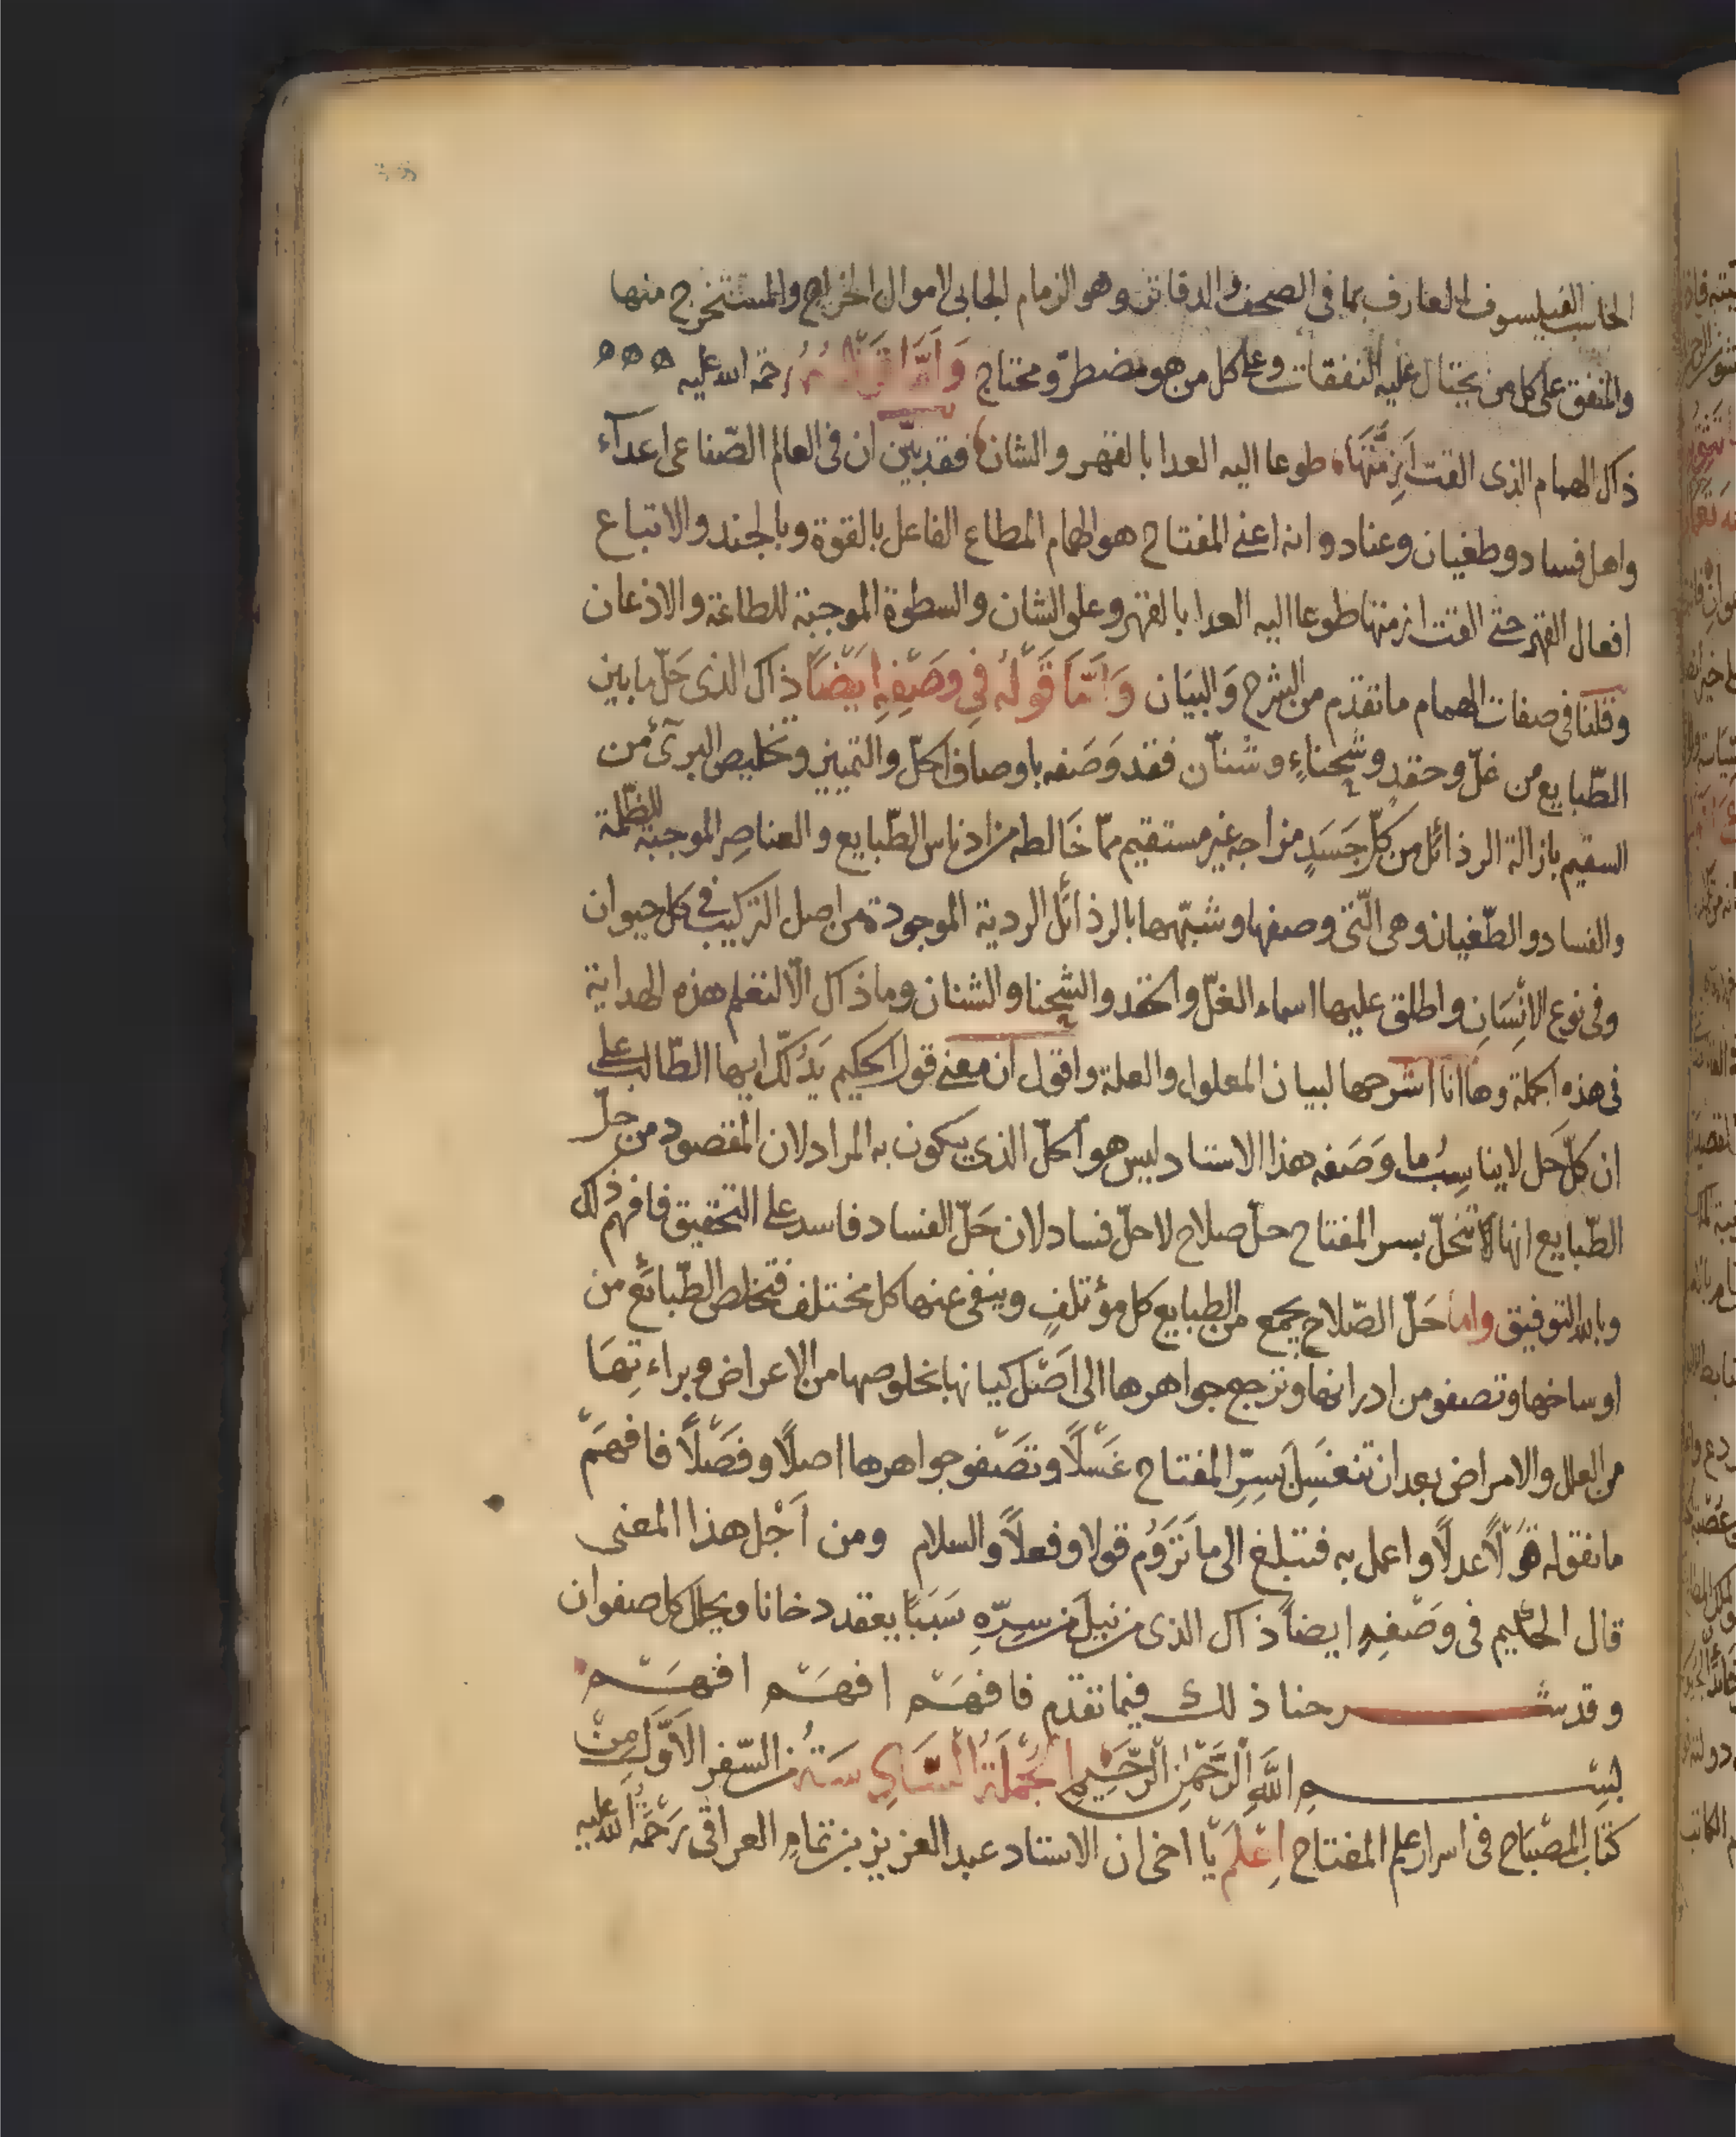 الحاسب الفيلسوف العارف بما فى الصحف والدفاتر وهو الزمام الجابى لاموال الخراج والمستخرج منها
والمنفق على كل من يحتال عليه النفقات وعلى كل من هو مضطرّ ومحتاج وَاَمَّا قَوْلُهُ رحمة الله عليه ه ه ه
ذاك الهمام الذى القت اَزِمَّتَهَا طوعا اليه العدا بالقهر والشان فقد بيّن ان فى العالم الصّناعى اعداء
واهل فساد وطغيان وعناد وانه اعنى المفتاح هو الهمام المطاع الفاعل بالقوة وبالجند والاتباع
افعال القهر حتى القت ازمتها طوعا اليه العدا بالقهر وعلو الشان والسطوة الموجبة للطاعة والاذعان
وقلنا فى صفات الهمام ما تقدّم من الشرح وَالبيَان وَاَمَّا قَوْلُهُ فِى وَصْفِهِ اَيْضًا ذاك الذى حَلّ ما بين
الطّبايع من غلّ وحقد وشحناء وشنآن فقد وَصَفه باوصاف الحلّ والتمييز وتخليص البرئ من
السقيم بازالة الرذائل من كلّ جَسَدٍ مزاجه غير مستقيم ممّا خَالطه من ادناس الطّبايع والعناصر الموجبة للظلمة
والفساد والطّغيان وهى الّتى وصفها وشبّهها بالرذائل الردية الموجودة من اصل التركيب فى كل حيوان
وفى نوع الاِنْسَانِ واطلق عليها اسماء الغلّ والحقد والشحنا والشنان وما ذاك الّا لتعلم هذه الهداية
فى هذه الجملة وها انا اشرحها لبيان المعلول والعلة واقول ان معنى قول الحكيم يَدُلّك ايها الطّالب على
ان كلّ حَل لا يناسِبُ ما وَصَفه هذا الاستاد ليس هو الحلّ الذى يكون به المراد لان المقصود من حلّ
الطّبايع انها لا تنحلّ بسر المفتاح حلّ صلاح لا حلّ فساد لان حَلّ الفساد فاسد على التحقيق فافهم ذلك
وبالله التوفيق واما حَلّ الصّلاح يجمع من الطبايع كل مؤتلفٍ وينفى عنها كل مختلف فتخلص الطّبائع من
اوساخها وتصفو من ادرانها وترجع جواهرها الى اَصْل كيانها بخلوصها من الاعراض وبراءتِهَا
من العلل والامراض بعد ان تنغسِلَ بسِرّ المفتاح غَسْلًا وتَصْفو جواهرها اصلًا وفَصْلًا فافهَمْ
ما نقوله قَوْلًا عدلًا واعمل به فتبلغ الى ما تَرُوم قولا وفعلًا والسلام ومن اَجْل هذا المعنى
قال الحكيم فى وَصْفِهِ ايضاً ذاك الذى من نيل من سِرّهِ سَبَبًا يعقد دخانا ويحلل كل صفوان
وقد شرحنا ذلك فيما تقدّم فافهَمْ افهَمْ افهَمْ
بِسْمِ اللَّهِ الرَّحْمٰنِ الرَّحِيْمِ الجُمْلَةُ السَّادِسَةُ من السّفر الاَوَّل مِنْ
كتاب المصْبَاح فى اسرار علم المفتاح اِعْلَمْ يَا اخى ان الاستاد عبد العزيز بن تمام العراقى رَحْمَةُ اللّهِ عليه